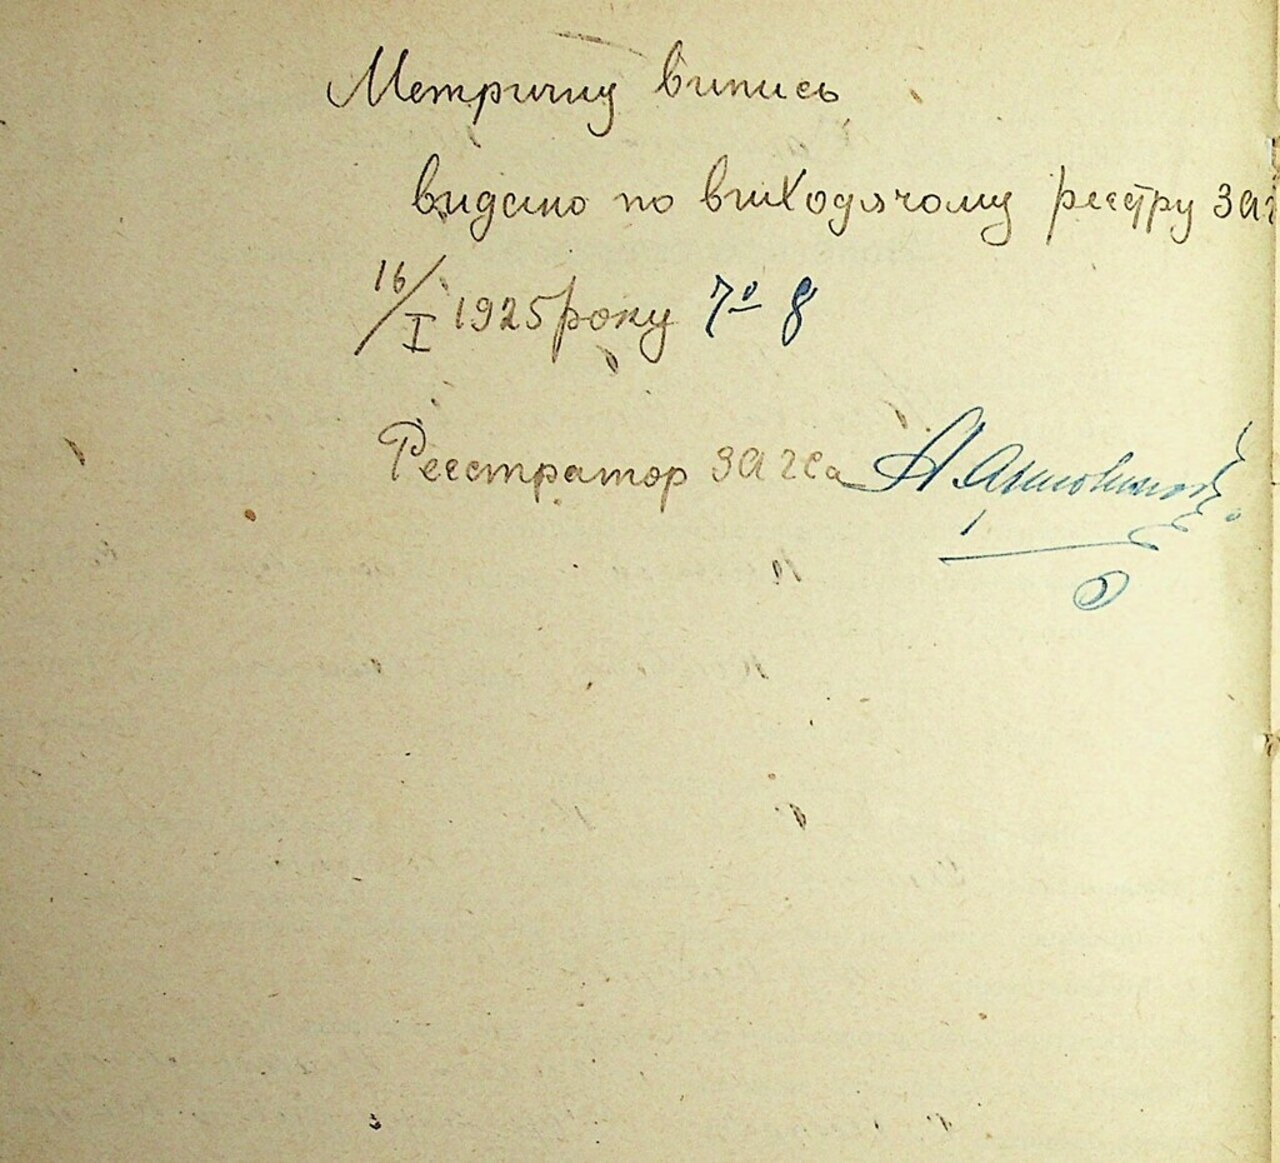 Метричну випись
видано по виходячому реєстру заг
16/I 1925 року № 8
Реєстратор загса